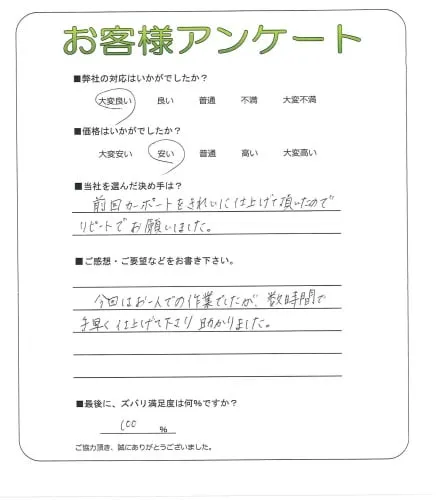 お客様アンケート
■弊社の対応はいかがでしたか?
大変良い 良い 普通 不満 大変不満
■価格はいかがでしたか?
大変安い 安い 普通 高い 大変高い
■当社を選んだ決め手は?
前回カーポートをきれいに仕上げて頂いたので
リピートでお願いしました。
■ご感想・ご要望などをお書き下さい。
今回はお一人での作業でしたが、数時間で
手早く仕上げて下さり助かりました。
■最後に、ズバリ満足度は何%ですか?
100 %
ご協力頂き、誠にありがとうございました。